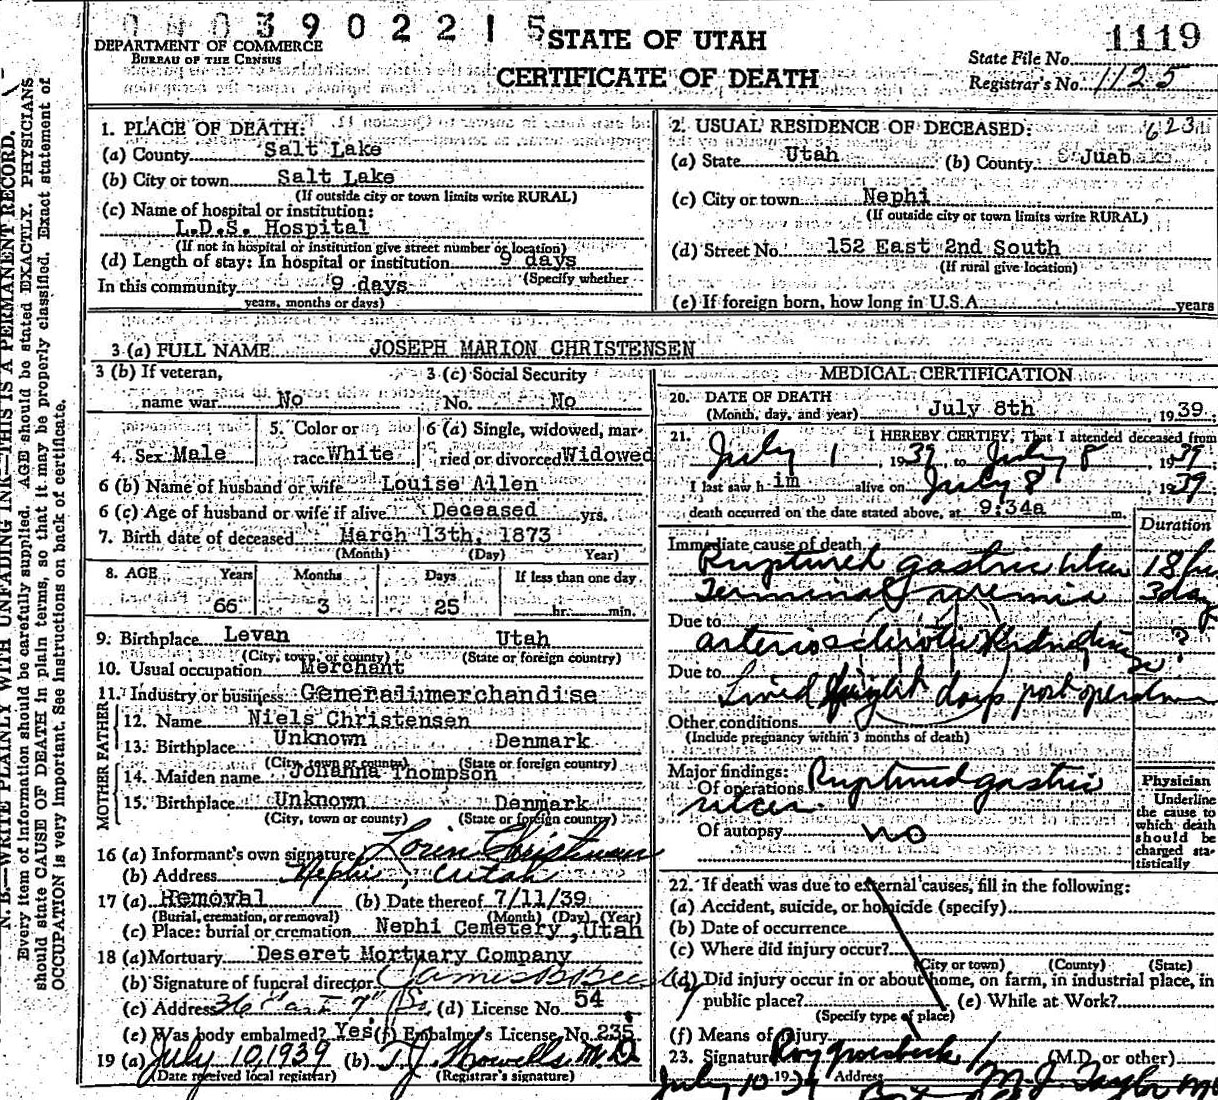 0003902215
DEPARTMENT OF COMMERCE
BUREAU OF THE CENSUS
STATE OF UTAH
CERTIFICATE OF DEATH
1119
State File No.
Registrar's No. 1125
N. B.—WRITE PLAINLY WITH UNFADING INK—THIS IS A PERMANENT RECORD.
Every item of information should be carefully supplied. AGE should be stated EXACTLY. PHYSICIANS
should state CAUSE OF DEATH in plain terms, so that it may be properly classified. Exact statement of
OCCUPATION is very important. See instructions on back of certificate.
1. PLACE OF DEATH:
(a) County Salt Lake
(b) City or town Salt Lake
(If outside city or town limits write RURAL)
(c) Name of hospital or institution:
L.D.S. Hospital
(If not in hospital or institution give street number or location)
(d) Length of stay: In hospital or institution 9 days
(Specify whether
In this community 9 days
years, months or days)
2. USUAL RESIDENCE OF DECEASED: 623
(a) State Utah (b) County Juab
(c) City or town Nephi
(If outside city or town limits write RURAL)
(d) Street No. 152 East 2nd South
(If rural give location)
(e) If foreign born, how long in U.S.A. years
3 (a) FULL NAME JOSEPH MARION CHRISTENSEN
3 (b) If veteran, 3 (c) Social Security
name war No No. No
4. Sex Male 5. Color or race White 6 (a) Single, widowed, married or divorced Widowed
6 (b) Name of husband or wife Louise Allen
6 (c) Age of husband or wife if alive Deceased yrs.
7. Birth date of deceased March 13th, 1873
(Month) (Day) Year)
8. AGE Years Months Days If less than one day
66 3 25 hr. min.
9. Birthplace Levan Utah
(City, town, or county) (State or foreign country)
10. Usual occupation Merchant
11. Industry or business General merchandise
FATHER
12. Name Niels Christensen
13. Birthplace Unknown Denmark
(City, town or county) (State or foreign country)
MOTHER
14. Maiden name Johanna Thompson
15. Birthplace Unknown Denmark
(City, town or county) (State or foreign country)
16 (a) Informant's own signature Lorin Christensen
(b) Address Nephi, Utah
17 (a) Removal (b) Date thereof 7/11/39
(Burial, cremation, or removal) (Month) (Day) (Year)
(c) Place: burial or cremation Nephi Cemetery, Utah
18 (a) Mortuary Deseret Mortuary Company
(b) Signature of funeral director
(c) Address 36 (d) License No. 54
(e) Was body embalmed? Yes (f) Embalmer's License No. 235
19 (a) July 10, 1939 (b) T.J. Howells M.D.
(Date received local registrar) (Registrar's signature)
MEDICAL CERTIFICATION
20. DATE OF DEATH
(Month, day, and year) July 8th, 1939.
21. I HEREBY CERTIFY, That I attended deceased from
July 1, 1939, to July 8, 1939.
I last saw him alive on July 8, 1939.
death occurred on the date stated above, at 9:34a m.
Duration
Immediate cause of death
Ruptured gastric ulcer 18
Terminal uremia 3 days
Due to
arteriosclerotic Kidney disease ?
Due to
Lived eight days post
Other conditions
(Include pregnancy within 3 months of death)
Major findings:
Of operations Ruptured gastric
ulcer.
Of autopsy no
Physician
Underline
the cause to
which death
should be
charged sta-
tistically
22. If death was due to external causes, fill in the following:
(a) Accident, suicide, or homicide (specify)
(b) Date of occurrence
(c) Where did injury occur?
(City or town) (County) (State)
(d) Did injury occur in or about home, on farm, in industrial place, in
public place? (e) While at Work?
(Specify type of place)
(f) Means of injury
23. Signature Roy Groesbeck (M.D. or other)
July 10 1939 Address M.J. Taylor